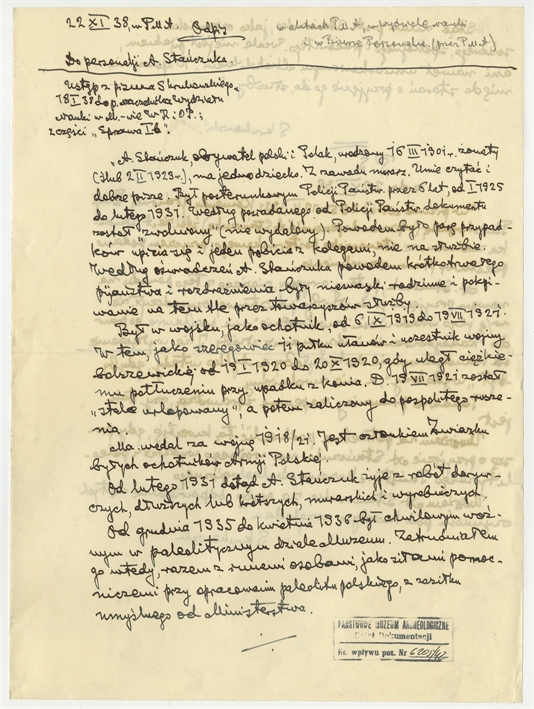 22 XI 38, w P.M.A. Odpis w aktach P.M.A. w wydziale nauki
i w Biurze Personalne (przez P.M.A)
Do personalji A. Stańczuka.
Ustęp z pisma S. Krukowskiego,
18 I 38 do p. naczelnika Wydziału
nauki w M-wie W.R. i O.P.;
z części "Sprawa Ib".
"A. Stańczuk, obywatel polski i Polak, urodzony 16 III 1901 r. żonaty
(ślub 2 II 1923 r.), ma jedno dziecko. Z zawodu murarz. Umie czytać i
dobrze pisze. Był posterunkowym Policji Państw. przez 6 lat, od I 1925
do lutego 1931. Według posiadanego od Policji Państw. dokumentu
został "zwolniony" (nie wydalony). Powodem było parę przypad-
ków upicia się i jeden pobicia z kolegami, nie na służbie.
Według oświadczeń A. Stańczuka powodem krótkotrwałego
pijaństwa i rozdrażnienia były niesnaski rodzinne i pokpi-
wanie na tem tle przez towarzyszów służby.
Był w wojsku, jako ochotnik, od 6 IX 1919 do 19 VII 1921.
W tem, jako szeregowiec 11 pułku ułanów i uczestnik wojny
bolszewickiej od 19 I 1920 do 20 X 1920, gdy uległ ciężkie-
mu potłuczeniu przy upadku z konia. D. 19 VII 1921 został
"stale urlopowany", a potem zaliczony do pospolitego rusze-
nia.
Ma medal za wojnę 1918/21. Jest członkiem Związku
byłych ochotników Armji Polskiej.
Od lutego 1931 dotąd A. Stańczuk żyje z robót doryw-
czych, dłuższych lub krótszych, murarskich i wyrobniczych.
Od grudnia 1935 do kwietnia 1936 był chwilowym woź-
nym w paleolitycznym dziale Muzeum. Zatrudniałem
go wtedy, razem z innemi osobami, jako siłami pomoc-
niczemi przy opracowaniu paleolitu polskiego, z zasiłku
umyślnego od Ministerstwa.
PAŃSTWOWE MUZEUM ARCHEOLOGICZNE
Dział Dokumentacji
Ks. wpływu poz. Nr